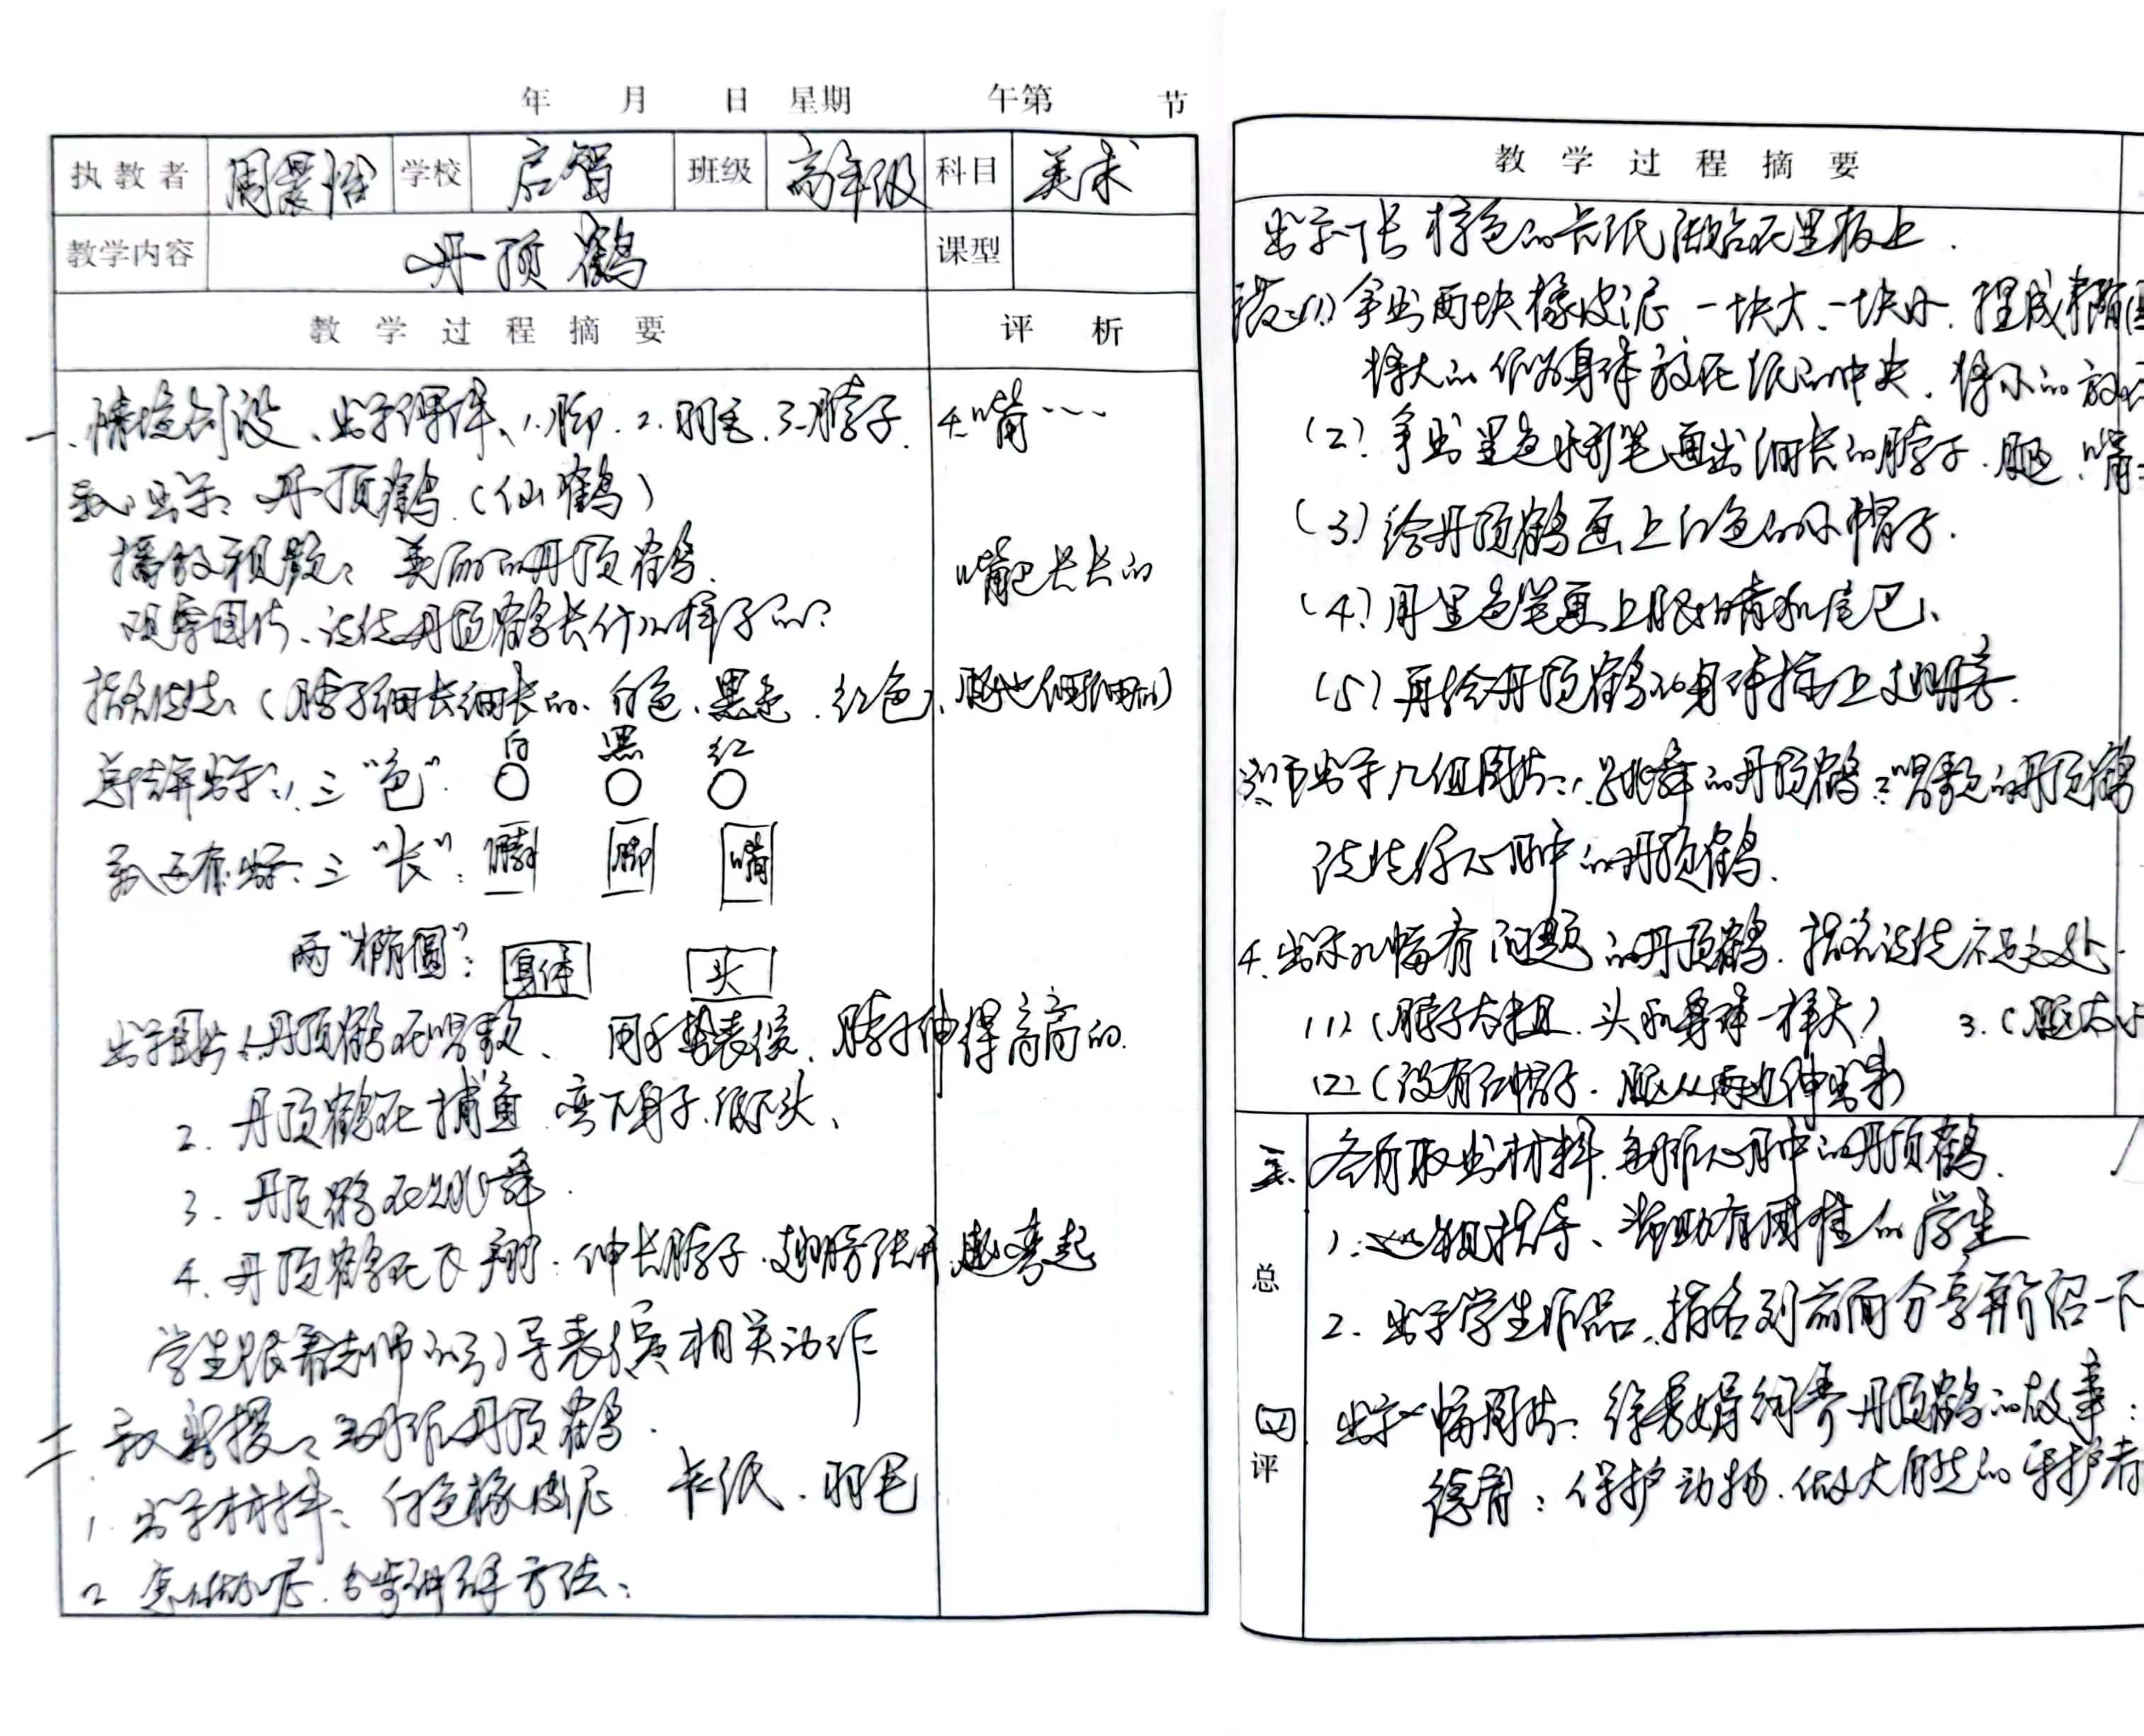 年 月 日 星期 午第 节
执教者 周 学校 启智 班级 高年级 科目 美术
教学内容 丹顶鹤 课型
教学过程摘要 评析
一、情境创设、出示课件、1.脚.2.羽毛.3.脖子.4.嘴…
出示:丹顶鹤(仙鹤)
播放视频:美丽的丹顶鹤.
图片、说说丹顶鹤长什么样子的?
指名说说:(脖子细长细长的、白色、黑色、红色、嘴巴长长的
腿也细细的)
总结并出示:1、三"色" 白 黑 红
还有 三"长": 脖 脚 嘴
两"椭圆": 身体 头
出示图片:1.丹顶鹤在唱歌、用手势表演、脖子伸得高高的.
2.丹顶鹤在捕鱼 弯下身子.低下头、
3.丹顶鹤在跳舞.
4.丹顶鹤在飞翔:伸长脖子.翅膀张开.腿弯起
学生跟着老师的引导表演相关动作
二 新授:制作丹顶鹤.
1.出示材料、白色橡皮泥 卡纸.羽毛
2 怎么做呢.分步讲解方法:
教学过程摘要
出示一张棕色的卡纸 粘在黑板上.
(1)拿出两块橡皮泥 一块大、一块小.捏成椭圆
将大的作为身体放在纸的中央.将小的放在
(2)拿出黑色水彩笔画出细长的脖子.腿.嘴
(3)给丹顶鹤画上红色的小帽子.
(4)用黑色笔画上眼睛和尾巴、
(5)再给丹顶鹤的身体插上翅膀.
3、出示几组图片:1.跳舞的丹顶鹤 2.唱歌的丹顶鹤
说说你心目中的丹顶鹤.
4.出示几幅有问题的丹顶鹤.指名说说不足之处.
(1)(脖子太粗.头和身体一样大) 3.(腿太小
(2)(没有红帽子.腿从两边伸出来)
三、各自取出材料.制作心目中的丹顶鹤.
1:巡视指导、帮助有困难的学生
总
2.出示学生作品、指名到前面分享并介绍一下
四 出示一幅图片:徐秀娟饲养丹顶鹤的故事:
评
德育:保护动物.做大自然的守护者